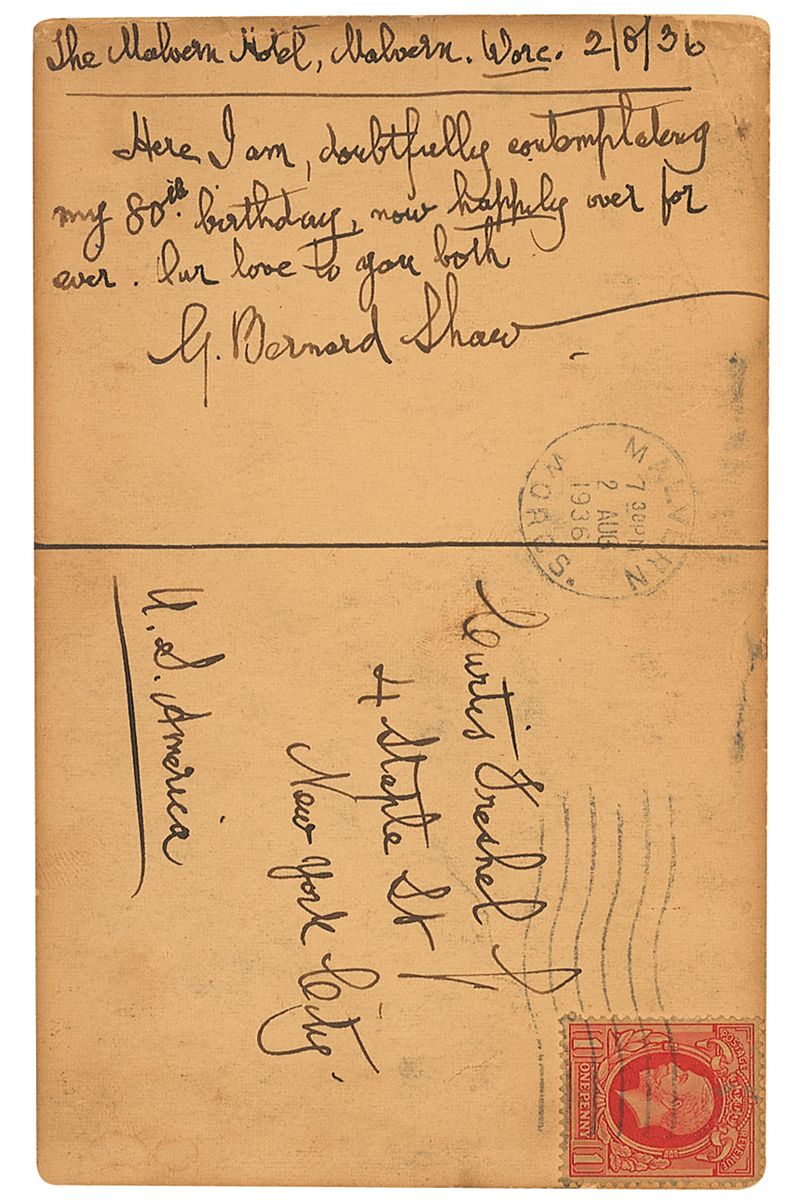 The Malvern Hotel, Malvern. Worc. 2/8/36
Here I am, doubtfully contemplating
my 80th. birthday, now happily over for
ever. Our love to you both
G. Bernard Shaw
MALVERN
WORCS.
7 30 PM
2 AUG
1936
Curtis Freshel
4 Staple St
New York City.
U.S. America
POSTAGE
REVENUE
1 ONE PENNY 1